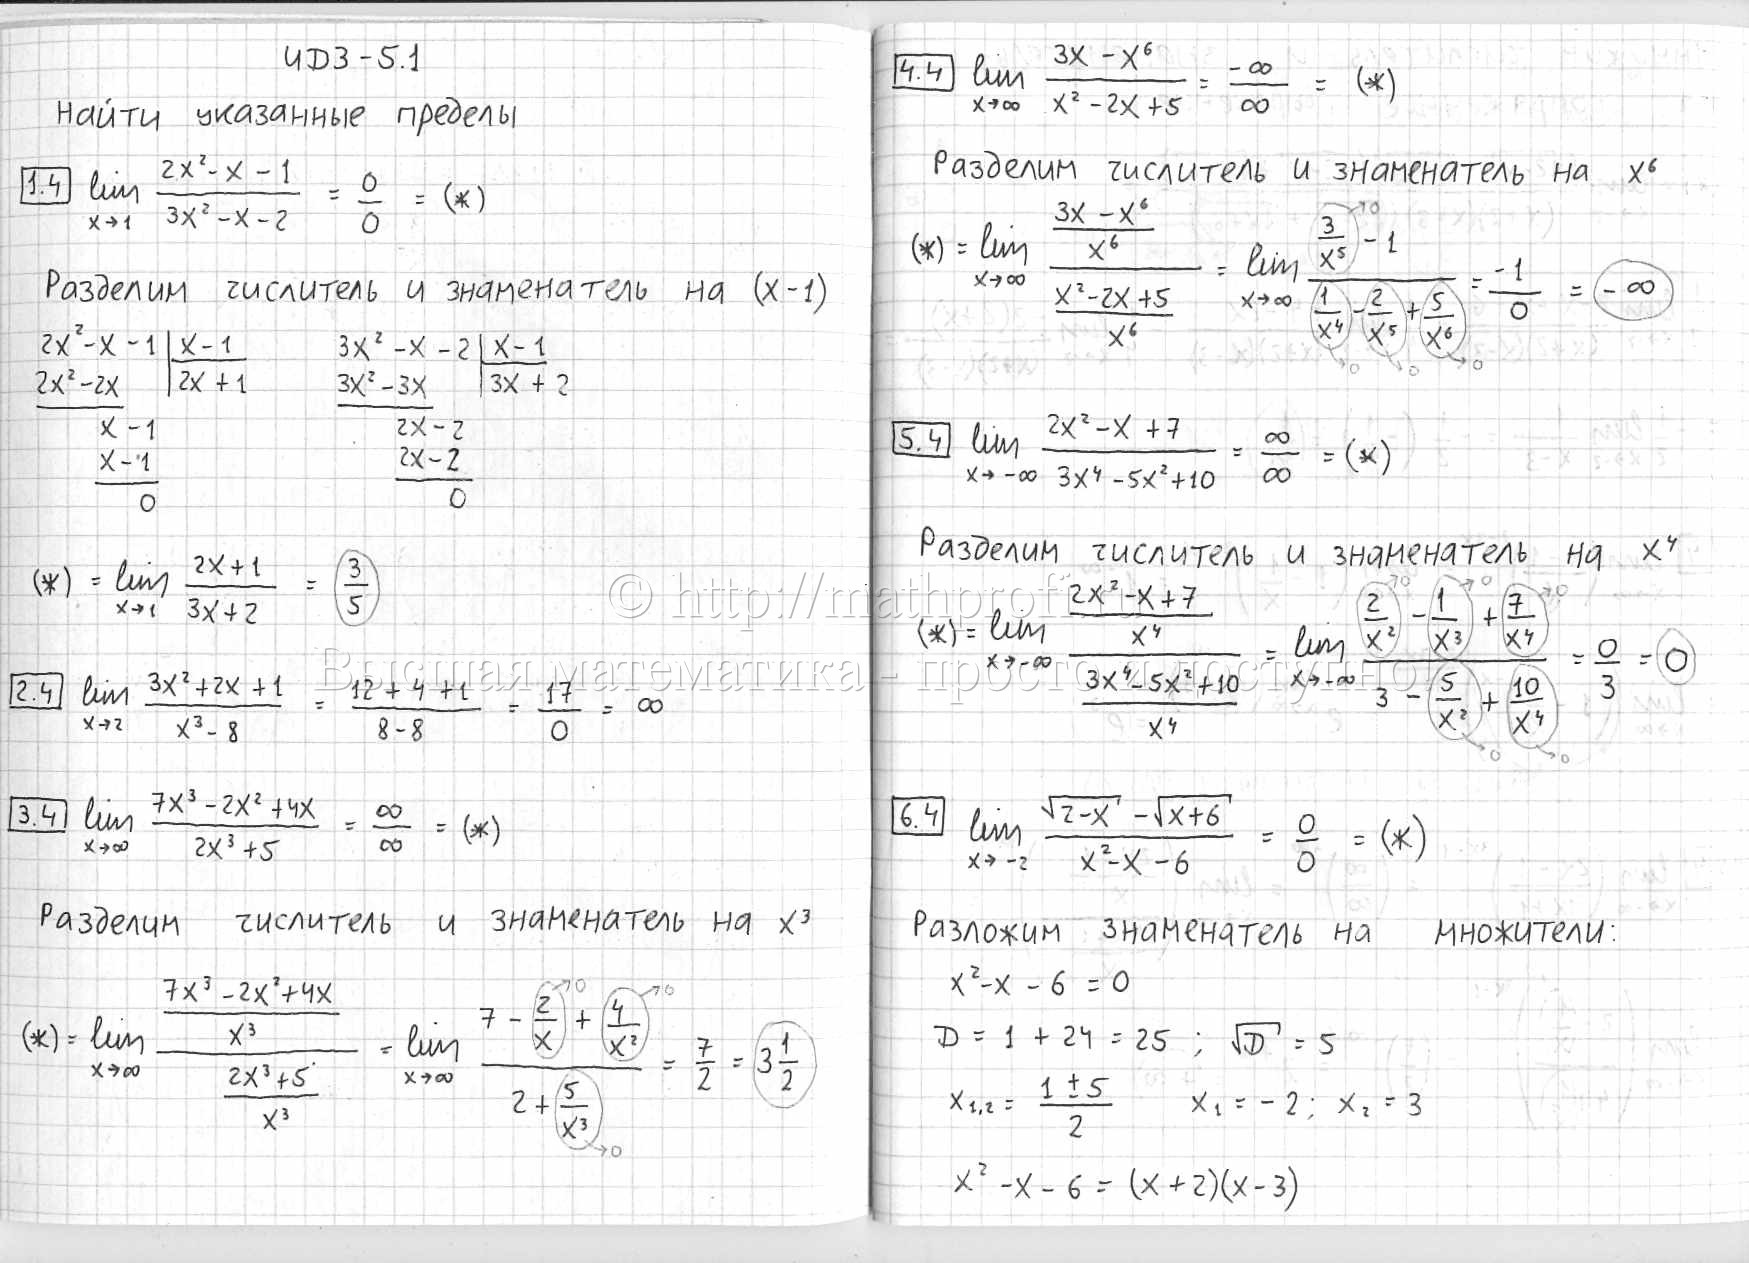 ИДЗ-5.1
Найти указанные пределы
1.4 lim x→1 (2x²-x-1)/(3x²-x-2) = 0/0 = (*)
Разделим числитель и знаменатель на (x-1)
2x²-x-1 | x-1
2x²-2x | 2x+1
x-1
x-1
0
3x²-x-2 | x-1
3x²-3x | 3x+2
2x-2
2x-2
0
(*) = lim x→1 (2x+1)/(3x+2) = 3/5
2.4 lim x→2 (3x²+2x+1)/(x³-8) = (12+4+1)/(8-8) = 17/0 = ∞
3.4 lim x→∞ (7x³-2x²+4x)/(2x³+5) = ∞/∞ = (*)
Разделим числитель и знаменатель на x³
(*) = lim x→∞ ((7x³-2x²+4x)/x³)/((2x³+5)/x³) = lim x→∞ (7 - 2/x→0 + 4/x²→0)/(2 + 5/x³→0) = 7/2 = 3 1/2
4.4 lim x→∞ (3x-x⁶)/(x²-2x+5) = -∞/∞ = (*)
Разделим числитель и знаменатель на x⁶
(*) = lim x→∞ ((3x-x⁶)/x⁶)/((x²-2x+5)/x⁶) = lim x→∞ (3/x⁵→0 - 1)/(1/x⁴→0 - 2/x⁵→0 + 5/x⁶→0) = -1/0 = -∞
5.4 lim x→-∞ (2x²-x+7)/(3x⁴-5x²+10) = ∞/∞ = (*)
Разделим числитель и знаменатель на x⁴
(*) = lim x→-∞ ((2x²-x+7)/x⁴)/((3x⁴-5x²+10)/x⁴) = lim x→-∞ (2/x²→0 - 1/x³→0 + 7/x⁴→0)/(3 - 5/x²→0 + 10/x⁴→0) = 0/3 = 0
6.4 lim x→-2 (√(2-x) - √(x+6))/(x²-x-6) = 0/0 = (*)
Разложим знаменатель на множители:
x²-x-6=0
D = 1 + 24 = 25 ; √D = 5
x₁,₂ = (1±5)/2 x₁ = -2; x₂ = 3
x²-x-6 = (x+2)(x-3)
© http://mathprofi.
Высшая математика - просто и доступно